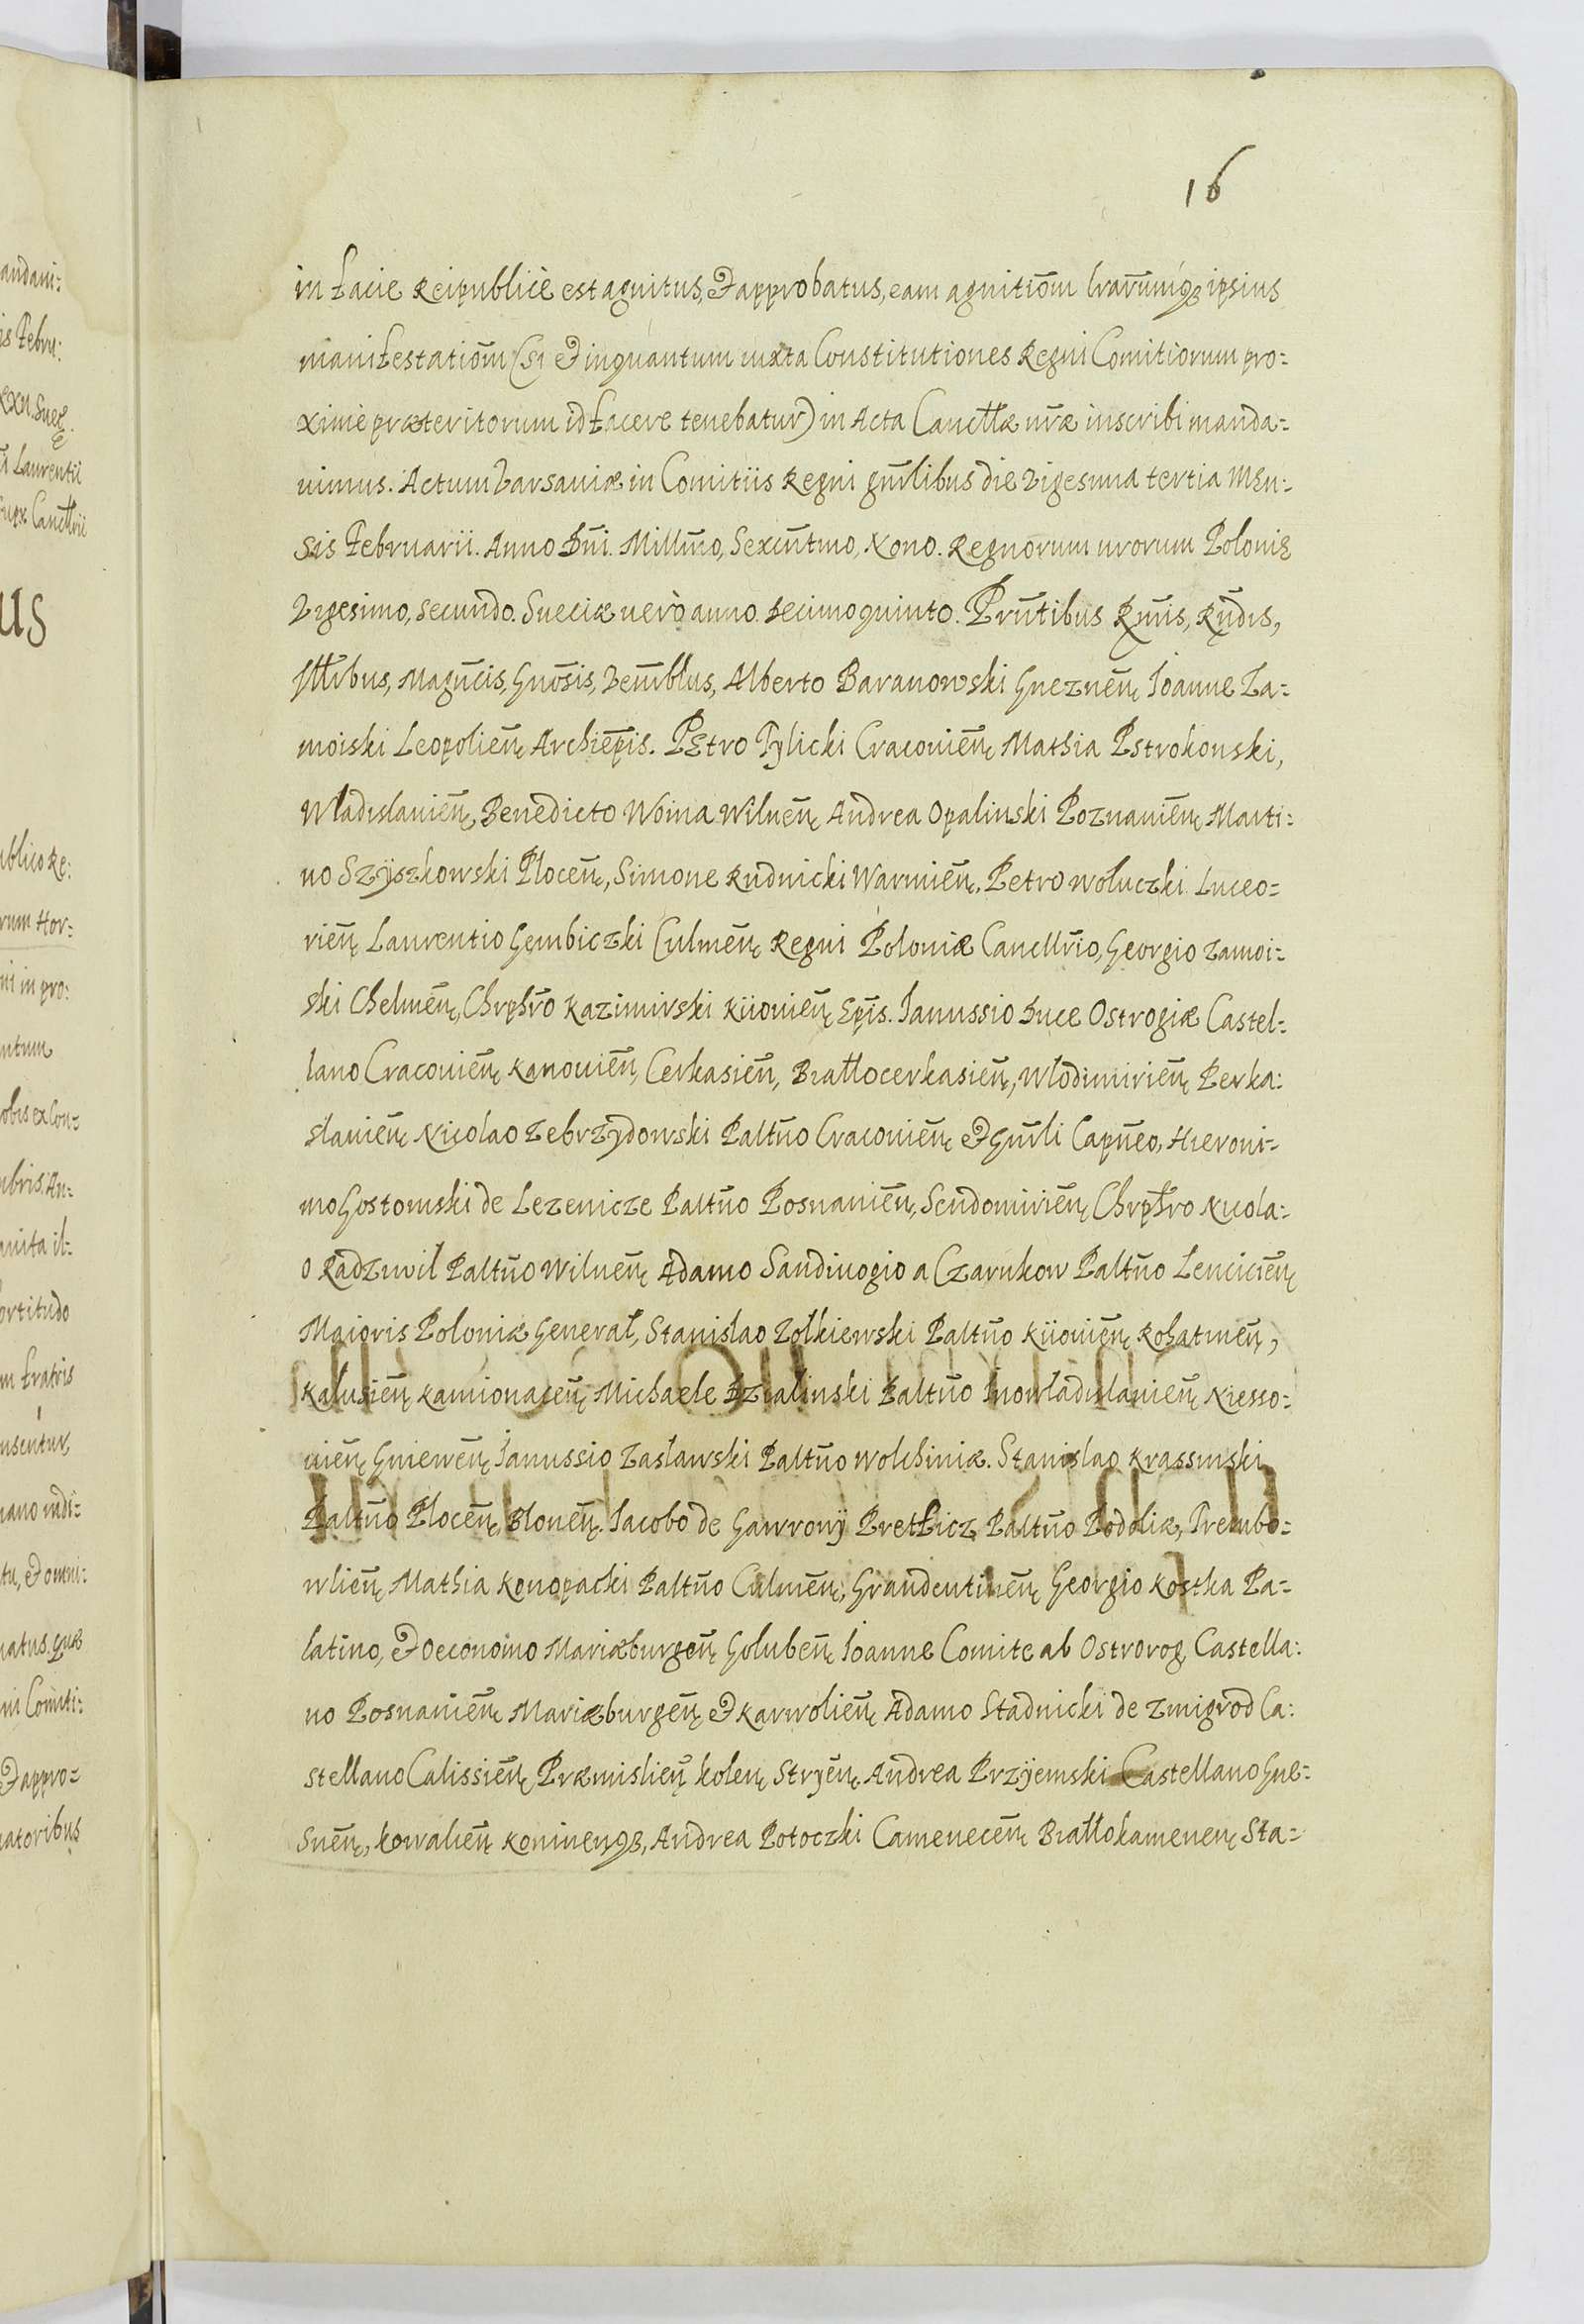 16
in facie Reipublicè est agnitus, & approbatus, eam agnitiõm lrarũmq; ipsius
manifestatiõm (si & inquantum iuxta Constitutiones Regni Comitiorum pro=
ximè præteritorum id facere tenebatur) in Acta Cancłłæ nr̃æ inscribi manda=
uimus. Actum Varsauiæ in Comitiis Regni gñrlibus die Vigesima tertia Men=
sis Februarii. Anno Dñi. Millm̃o, Sexcñtmo, Nono. Regnorum nrorum Polonię
Vigesimo, secundo. Sueciæ uerò anno decimo quinto. Prñtibus Rm̃is, Rñdis,
Illr̃ibus, Magñcis, Gnõsis, Veñrblus, Alberto Baranowski Gneznẽn, Ioanne Za=
moiski Leopoliẽn, Archiẽpis. Petro Tylicki Cracouiẽn, Mathia Pstrokonski,
Władislauiẽn, Benedicto Woina Wilnẽn, Andrea Opalinski Poznaniẽn, Marti=
no Szÿszkowski Plocẽn, Simone Rudnicki Warmiẽn, Petro Wołuczki Luceo=
riẽn, Laurentio Gembiczki Culmẽn, Regni Poloniæ Cancllr̃io, Georgio Zamoi=
ski Chelmẽn, Chrpħr̃o Kazimirski Kiiouiẽn, Ep̃is. Ianussio Duce Ostrogiæ Castel=
lano Cracouiẽn, Kanouiẽn, Cerkasiẽn, Białłocerkasiẽn, Włodimiriẽn, Perka=
slauiẽn, Nicolao Zebrzydowski Paltño Cracouiẽn, & Gñrli Capñeo, Hieroni=
mo Gostomski de Lezenicze Paltño Posnaniẽn, Sendomiriẽn, Chrpħro Nicola=
o Radziwił Paltño Wilnẽn, Adamo Sandiuogio a Czarnkow Paltño Lenciciẽn,
Maioris Poloniæ Generał, Stanislao Zołkiewski Paltño Kiiouiẽn, Rohatinẽn,
Kalusiẽn, Kamionacẽn, Michaele Dzialinski Paltño Inowładislauiẽn, Niesso=
uiẽn, Gniewẽn, Ianussio Zasławski Paltño Wolhiniæ. Stanislao Krassinski
Paltño Plocẽn, Blonẽn, Iacobo de Gawronÿ Pretficz, Paltño Podoliæ, Trembo=
wliẽn, Mathia Konopacki Paltño Culmẽn, Graudentinẽn, Georgio Kostka Pa=
latino, & Oeconomo Mariæburgẽn, Golubẽn, Ioanne Comite ab Ostrorog, Castella=
no Posnaniẽn, Mariæburgẽn, & Karwoliẽn, Adamo Stadnicki de Zmigrod Ca=
stellano Calissiẽn, Præmisliẽn, Kolen, Stryẽn, Andrea Przÿemski Castellano Gne=
snẽn, Kowaliẽn, Koninenq;, Andrea Potoczki Camenecẽn, Białłokamenen, Sta=